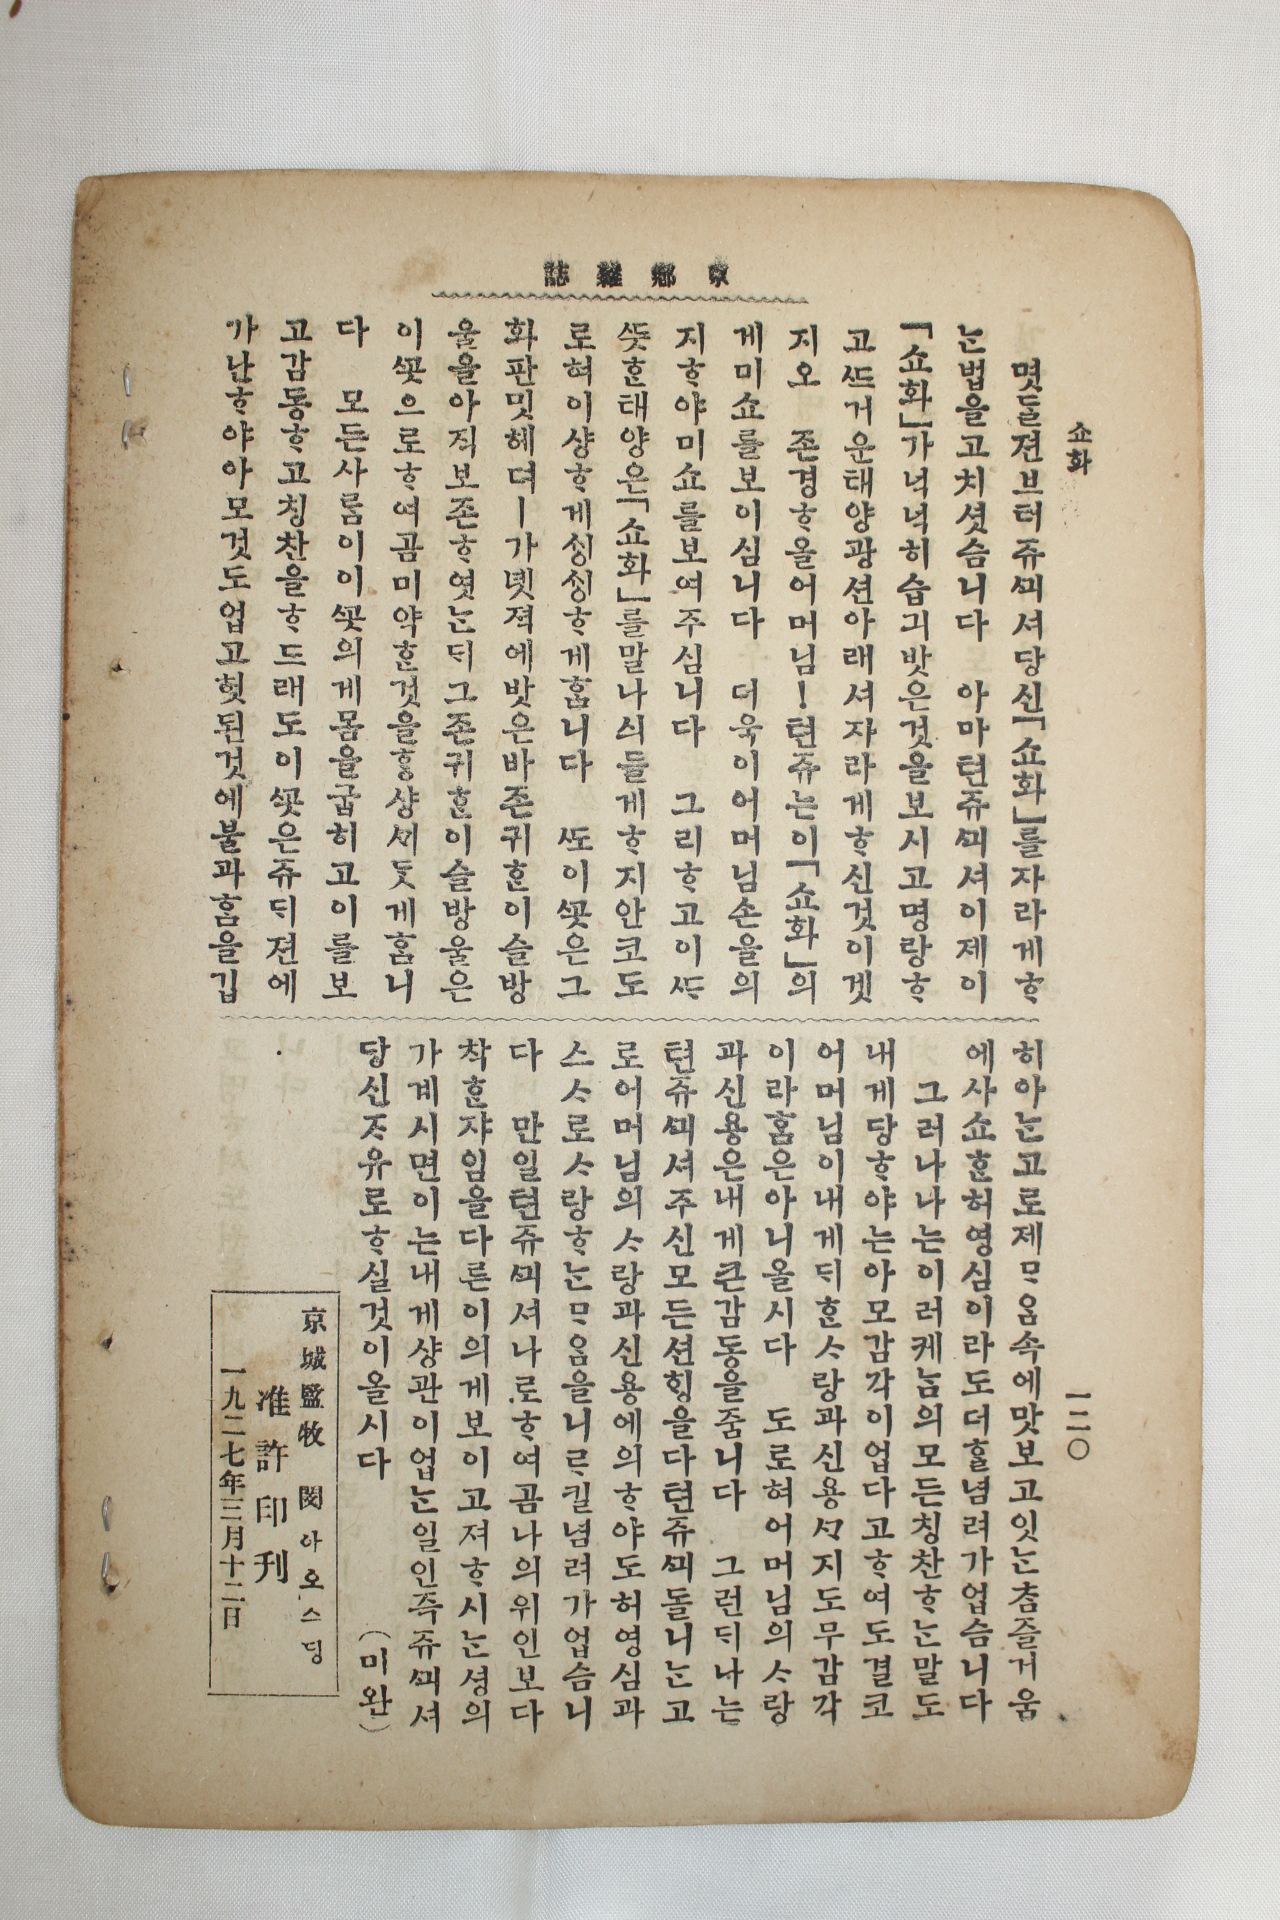 京鄕雜誌
쇼화
一二〇
몃ᄃᆞᆯ젼브터쥬ᄭᅴ셔당신「쇼화」를자라게ᄒᆞ
ᄂᆞᆫ법을고치셧슴니다 아마텬쥬ᄭᅴ셔이제이
「쇼화」가넉넉히습긔밧은것을보시고명랑ᄒᆞ
고ᄯᅳ거운태양광션아래셔자라게ᄒᆞ신것이겟
지오 존경ᄒᆞ올어머님!텬쥬는이「쇼화」의
게미쇼를보이심니다 더욱이어머님손을의
지ᄒᆞ야미쇼를보여주심니다 그리ᄒᆞ고이ᄯᆞ
ᄯᅳᆺᄒᆞᆫ태양은「쇼화」를말나싀들게ᄒᆞ지안코도
로혀이샹ᄒᆞ게싱싱ᄒᆞ게홈니다 ᄯᅩ이ᄭᅩᆺ은그
화판밋헤뎌ㅣ가녯젹에밧은바존귀ᄒᆞᆫ이슬방
울을아직보존ᄒᆞ엿ᄂᆞᆫᄃᆡ그존귀ᄒᆞᆫ이슬방울은
이ᄭᅩᆺ으로ᄒᆞ여곰미약ᄒᆞᆫ것을ᄒᆞᆼ샹ᄭᆡᄃᆞᆺ게홈니
다 모든사ᄅᆞᆷ이이ᄭᅩᆺ의게몸을굽히고이를보
고감동ᄒᆞ고칭찬을ᄒᆞ드래도이ᄭᅩᆺ은쥬ᄃᆡ젼에
가난ᄒᆞ야아모것도업고헛된것에불과ᄒᆞᆷ을깁
히아ᄂᆞᆫ고로제ᄆᆞ음속에맛보고잇ᄂᆞᆫ참즐거움
에사쇼ᄒᆞᆫ허영심이라도더ᄒᆞᆯ념려가업슴니다
그러나나는이러케ᄂᆞᆷ의모든칭찬ᄒᆞᄂᆞᆫ말도
내게당ᄒᆞ야는아모감각이업다고ᄒᆞ여도결코
어머님이내게ᄃᆡᄒᆞᆫᄉᆞ랑과신용ᄭᆞ지도무감각
이라홈은아니올시다 도로혀어머님의ᄉᆞ랑
과신용은내게큰감동을줌니다 그런ᄃᆡ나는
텬쥬ᄭᅴ셔주신모든션ᄒᆡᆼ을다텬쥬ᄭᅴ돌니ᄂᆞᆫ고
로어머님의ᄉᆞ랑과신용에의ᄒᆞ야도허영심과
스ᄉᆞ로ᄉᆞ랑ᄒᆞᄂᆞᆫᄆᆞ음을니ᄅᆞ킬념려가업슴니
다 만일텬쥬ᄭᅴ셔나로ᄒᆞ여곰나의위인보다
착ᄒᆞᆫ쟈임을다른이의게보이고져ᄒᆞ시ᄂᆞᆫ셩의
가계시면이는내게샹관이업ᄂᆞᆫ일인즉쥬ᄭᅴ셔
당신ᄌᆞ유로ᄒᆞ실것이올시다 (미완)
京城監牧 閔아오스딩
准許印刊
一九二七年三月十二日